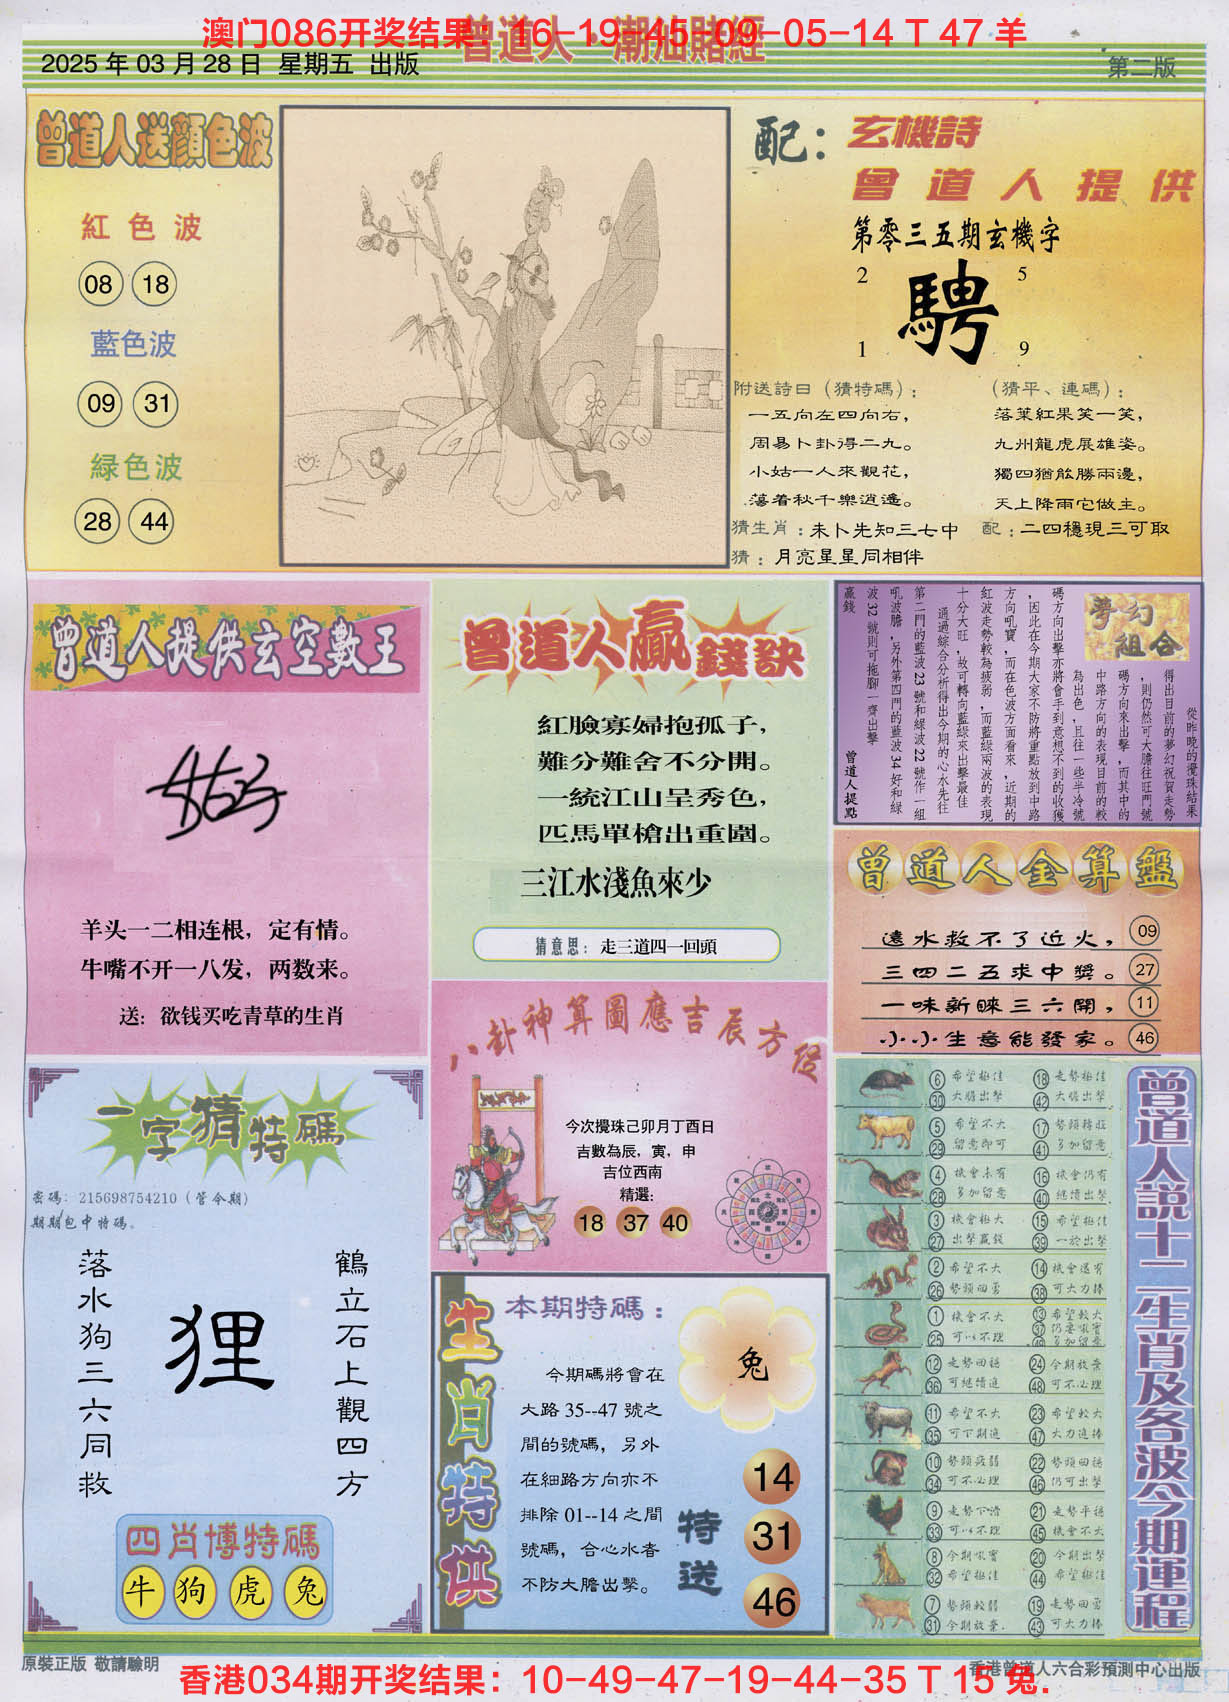 澳门086开奖结果：16-19-45-09-05-14 T 47 羊
曾道人 潮汕賭經
2025 年 03 月 28 日 星期五 出版
第二版
曾道人送顏色波
紅色波
08 18
藍色波
09 31
緑色波
28 44
配：玄機詩
曾道人提供
第零三五期玄機字
2 5
騁
1 9
附送詩曰（猜特碼）：
一五向左四向右，
周易卜卦得二九。
小姑一人來觀花，
蕩着秋千樂逍遙。
（猜平、連碼）：
落葉紅果笑一笑，
九州龍虎展雄姿。
獨四猶能勝兩邊，
天上降雨它做主。
猜生肖：未卜先知三七中
配：二四穩現三可取
猜：月亮星星同相伴
曾道人提供玄空數王
羊头一二相连根，定有情。
牛嘴不开一八发，两数来。
送：欲钱买吃青草的生肖
曾道人贏錢訣
紅臉寡婦抱孤子，
難分難舍不分開。
一統江山呈秀色，
匹馬單槍出重圍。
三江水淺魚來少
猜意思：走三道四一回頭
夢幻組合
從昨晚的攪珠結果
得出目前的夢幻祝賀走勢
，則仍然可大膽往旺門號
碼方向來出擊，而其中的
中路方向的表現目前的較
為出色，且往一些半冷號
碼方向出擊亦將會手到意想不到的收獲
，因此在今期大家不防將重點放到中路
方向吼寶，而在色波方面看來，近期的
紅波走勢較為疲弱，而藍綠兩波的表現
十分大旺，故可轉向藍綠來出擊最佳
通過綜合分析得出今期的心水先往
第二門的藍波 23 號和綠波 22 號作一組
吼波膽，另外第四門的藍波 34 好和綠
波 32 號則可拖腳一齊出擊
贏錢
曾道人提點
曾道人金算盤
遠水救不了近火， 09
三四二五求中獎。 27
一味新睞三六開， 11
小小生意能發家。 46
八卦神算圖應吉辰方位
今次攪珠己卯月丁酉日
吉數為辰，寅，申
吉位西南
精選：
18 37 40
一字猜特碼
密碼：215698754210（管今期）
期期包中特碼。
落水狗三六同救
狸
鶴立石上觀四方
四肖博特碼
牛 狗 虎 兔
生肖特供
本期特碼：
兔
今期碼將會在
大路 35--47 號之
間的號碼，另外
在細路方向亦不
排除 01--14 之間
號碼，合心水者
不防大膽出擊。
特送
14
31
46
曾道人説十二生肖及各波今期運程
6 希望極佳 18 走勢極佳
30 大膽出擊 42 大膽出擊
5 希望不大 17 勢頭轉旺
29 留意即可 41 多加留意
4 機會未有 16 機會仍有
28 多加留意 40 繼續出擊
3 機會極大 15 希望極佳
27 出擊贏錢 39 一於出擊
2 希望不大 14 機會還有
26 勢頭回勇 38 可大力捧
1 機會不大 13 希望較大
25 可以不理 37 仍要吼寶
49 多加留意
12 走勢回穩 24 今期放棄
36 可繼續追 48 可不必理
11 希望不大 23 希望較大
35 可下期追 47 大力追捧
10 勢頭疲弱 22 勢頭回穩
34 可不必理 46 仍可出擊
9 走勢下滑 21 走勢平穩
33 可以不理 45 機會不大
8 今期吼寶 20 今期出擊
32 希望極佳 44 希望極佳
7 勢頭較弱 19 走勢回勇
31 今期放棄. 43 可大力捧
原裝正版 敬請驗明
香港曾道人六合彩預測中心出版
香港034期开奖结果：10-49-47-19-44-35 T 15 兔.